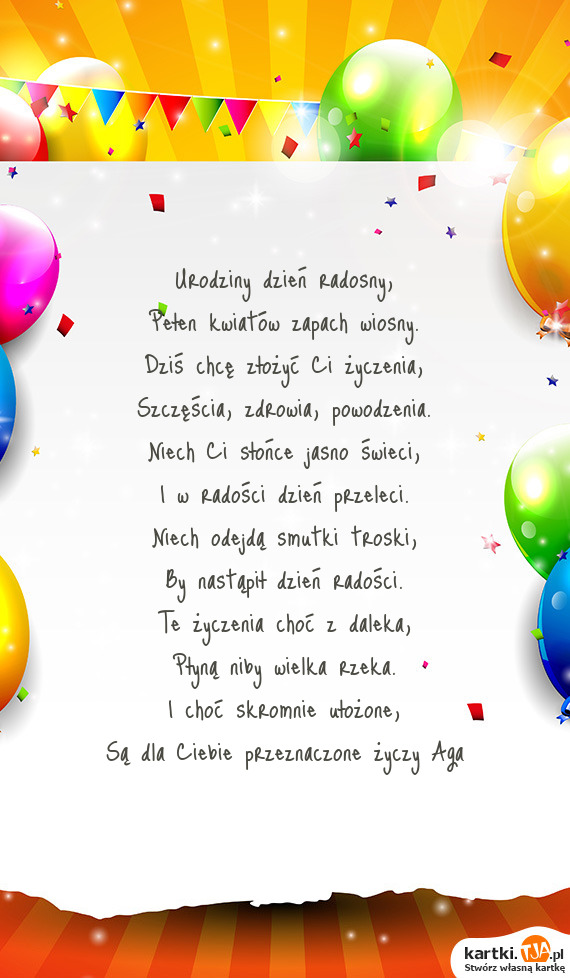 Urodziny dzień radosny,
Pełen kwiatów zapach wiosny.
Dziś chcę złożyć Ci życzenia,
Szczęścia, zdrowia, powodzenia.
Niech Ci słońce jasno świeci,
I w radości dzień przeleci.
Niech odejdą smutki troski,
By nastąpił dzień radości.
Te życzenia choć z daleka,
Płyną niby wielka rzeka.
I choć skromnie ułożone,
Są dla Ciebie przeznaczone życzy Aga
kartki.TJA.pl
Stwórz własną kartkę